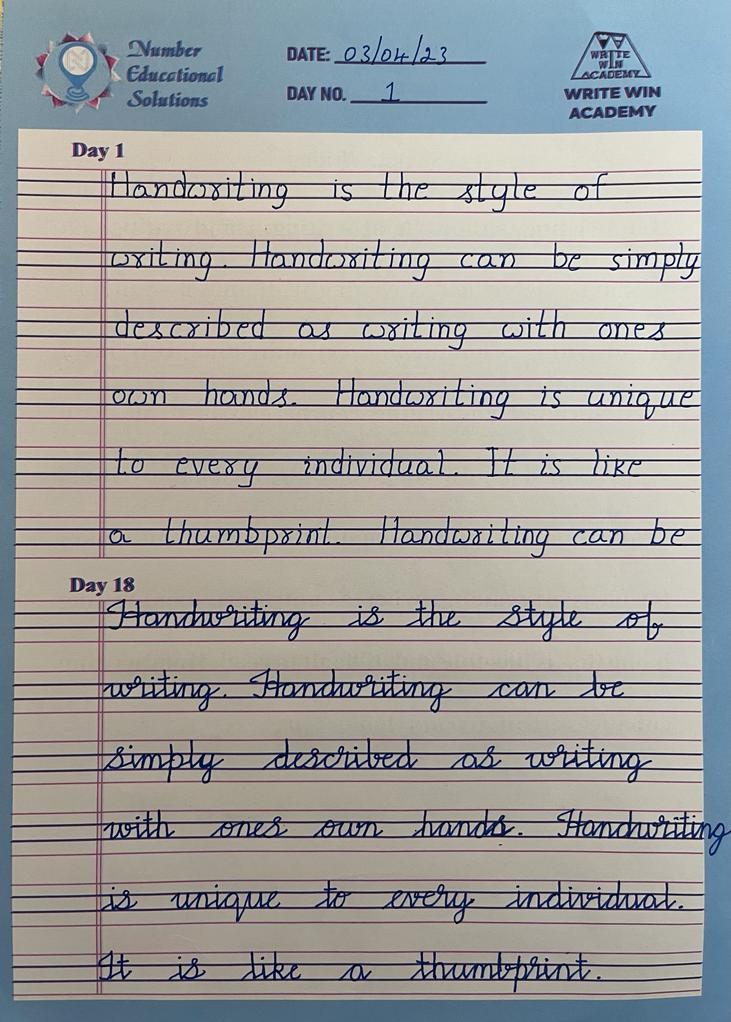 Number
Educational
Solutions
DATE: 03/04/23
DAY NO. 1
WRITE
WIN
ACADEMY
WRITE WIN
ACADEMY
Day 1
Handwriting is the style of
writing. Handwriting can be simply
described as writing with ones
own hands. Handwriting is unique
to every individual. It is like
a thumbprint. Handwriting can be
Day 18
Handwriting is the style of
writing. Handwriting can be
simply described as writing
with ones own hands. Handwriting
is unique to every individual.
It is like a thumbprint.